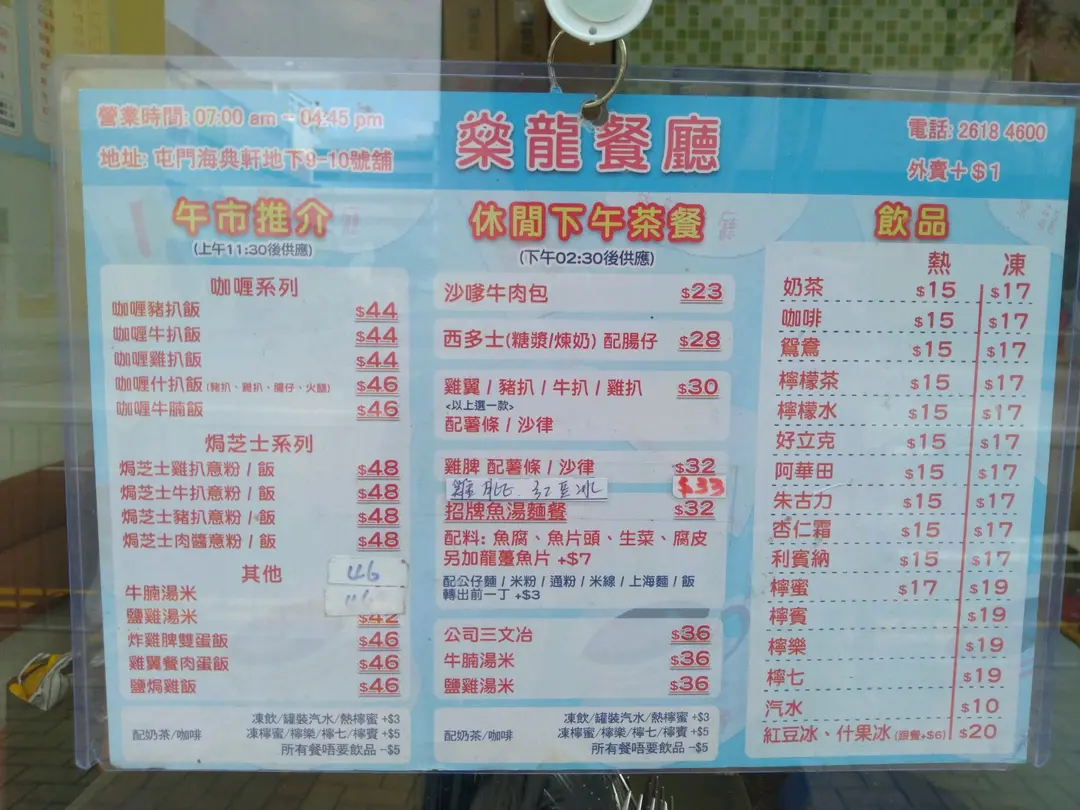 營業時間: 07:00 am - 04:45 pm
地址: 屯門海典軒地下9-10號舖
燊龍餐廳
電話: 2618 4600
外賣+$1
午市推介
(上午11:30後供應)
咖喱系列
咖喱豬扒飯 $44
咖喱牛扒飯 $44
咖喱雞扒飯 $44
咖喱什扒飯 (豬扒、雞扒、腸仔、火腿) $46
咖喱牛腩飯 $46
焗芝士系列
焗芝士雞扒意粉 / 飯 $48
焗芝士牛扒意粉 / 飯 $48
焗芝士豬扒意粉 / 飯 $48
焗芝士肉醬意粉 / 飯 $48
其他
牛腩湯米 46
鹽雞湯米 46 $42
炸雞脾雙蛋飯 $46
雞翼餐肉蛋飯 $46
鹽焗雞飯 $46
配奶茶/咖啡
凍飲/罐裝汽水/熱檸蜜 +$3
凍檸蜜/檸樂/檸七/檸賓 +$5
所有餐唔要飲品 -$5
休閒下午茶餐
(下午02:30後供應)
沙嗲牛肉包 $23
西多士(糖漿/煉奶) 配腸仔 $28
雞翼 / 豬扒 / 牛扒 / 雞扒 $30
<以上選一款>
配薯條 / 沙律
雞脾 配薯條 / 沙律 $32
雞脾 紅豆冰 $33
招牌魚湯麵餐 $32
配料: 魚腐、魚片頭、生菜、腐皮
另加龍躉魚片 +$7
配公仔麵 / 米粉 / 通粉 / 米線 / 上海麵 / 飯
轉出前一丁 +$3
公司三文治 $36
牛腩湯米 $36
鹽雞湯米 $36
配奶茶/咖啡
凍飲/罐裝汽水/熱檸蜜 +$3
凍檸蜜/檸樂/檸七/檸賓 +$5
所有餐唔要飲品 -$5
飲品
熱 凍
奶茶 $15 $17
咖啡 $15 $17
鴛鴦 $15 $17
檸檬茶 $15 $17
檸檬水 $15 $17
好立克 $15 $17
阿華田 $15 $17
朱古力 $15 $17
杏仁霜 $15 $17
利賓納 $15 $17
檸蜜 $17 $19
檸賓 $19
檸樂 $19
檸七 $19
汽水 $10
紅豆冰、什果冰 (跟餐+$6) $20